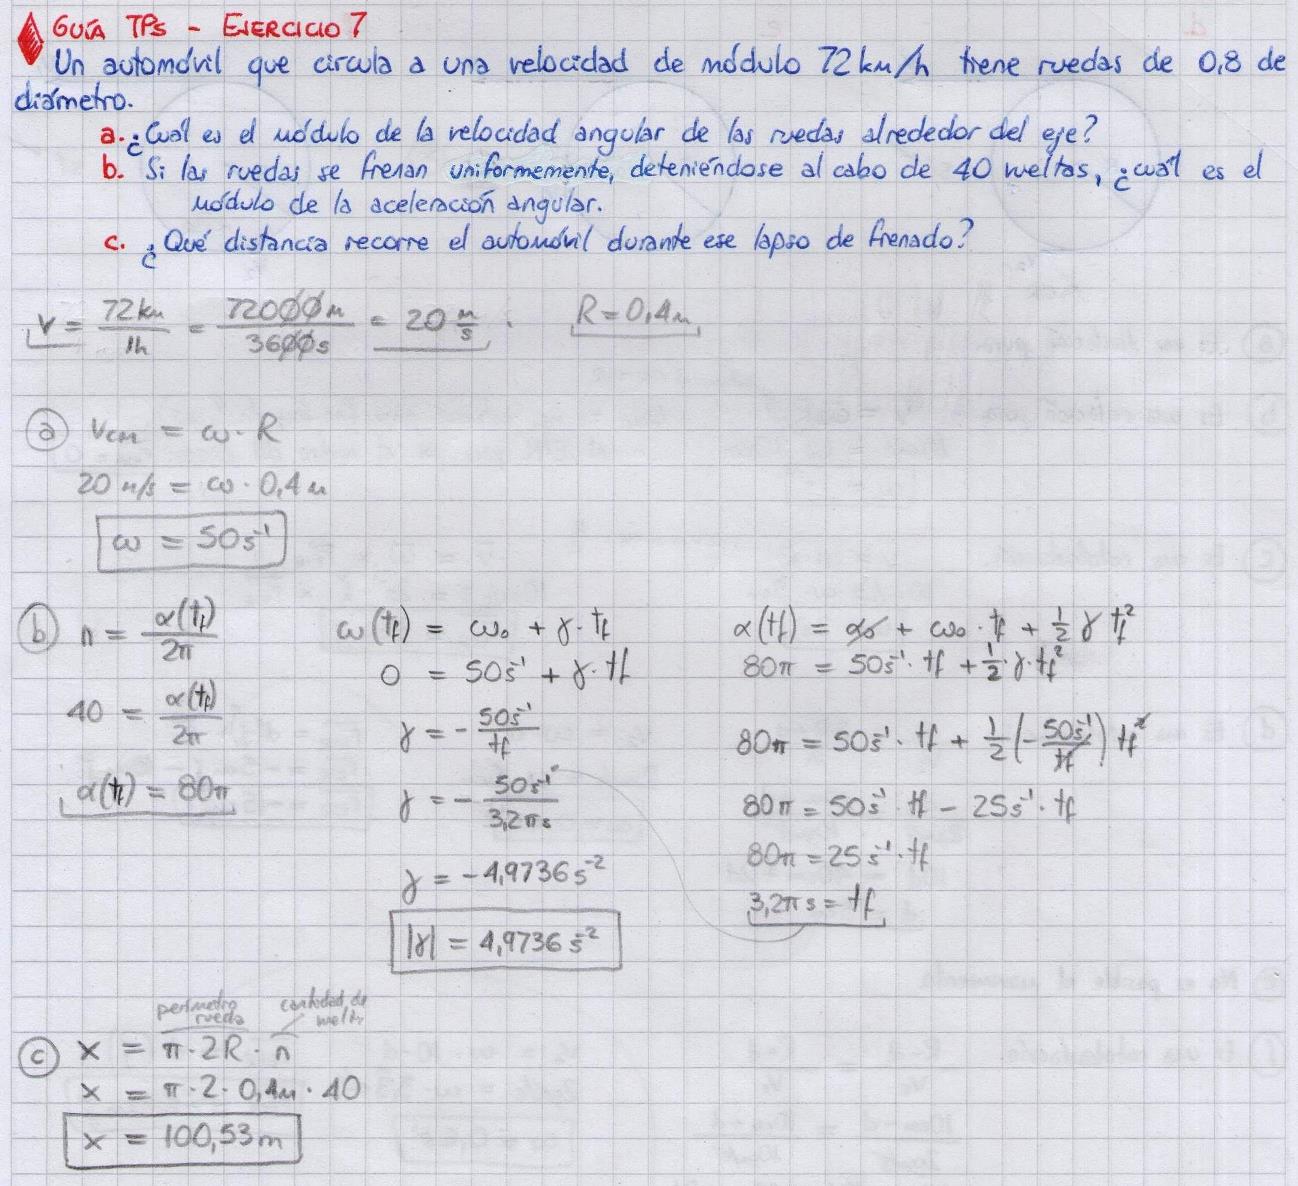 GUÍA TPs - EJERCICIO 7
Un automóvil que circula a una velocidad de módulo 72 km/h tiene ruedas de 0,8 de
diámetro.
a. ¿Cuál es el módulo de la velocidad angular de las ruedas alrededor del eje?
b. Si las ruedas se frenan uniformemente, deteniéndose al cabo de 40 vueltas, ¿cuál es el
módulo de la aceleración angular.
c. ¿Qué distancia recorre el automóvil durante ese lapso de frenado?
V = 72 km / 1h = 72000 m / 3600 s = 20 m/s . R = 0,4 m
a) Vcm = ω · R
20 m/s = ω · 0,4 m
ω = 50 s⁻¹
b) n = α(tf) / 2π
40 = α(tf) / 2π
α(tf) = 80π
ω(tf) = ω₀ + γ · tf
0 = 50 s⁻¹ + γ · tf
γ = - 50 s⁻¹ / tf
γ = - 50 s⁻¹ / 3,2π s
γ = -4,9736 s⁻²
|γ| = 4,9736 s⁻²
α(tf) = α₀ + ω₀ · tf + 1/2 γ tf²
80π = 50 s⁻¹ · tf + 1/2 · γ · tf²
80π = 50 s⁻¹ · tf + 1/2 (- 50 s⁻¹ / tf) tf²
80π = 50 s⁻¹ · tf - 25 s⁻¹ · tf
80π = 25 s⁻¹ · tf
3,2π s = tf
perímetro rueda cantidad de vueltas
c) x = π · 2R · n
x = π · 2 · 0,4 m · 40
x = 100,53 m